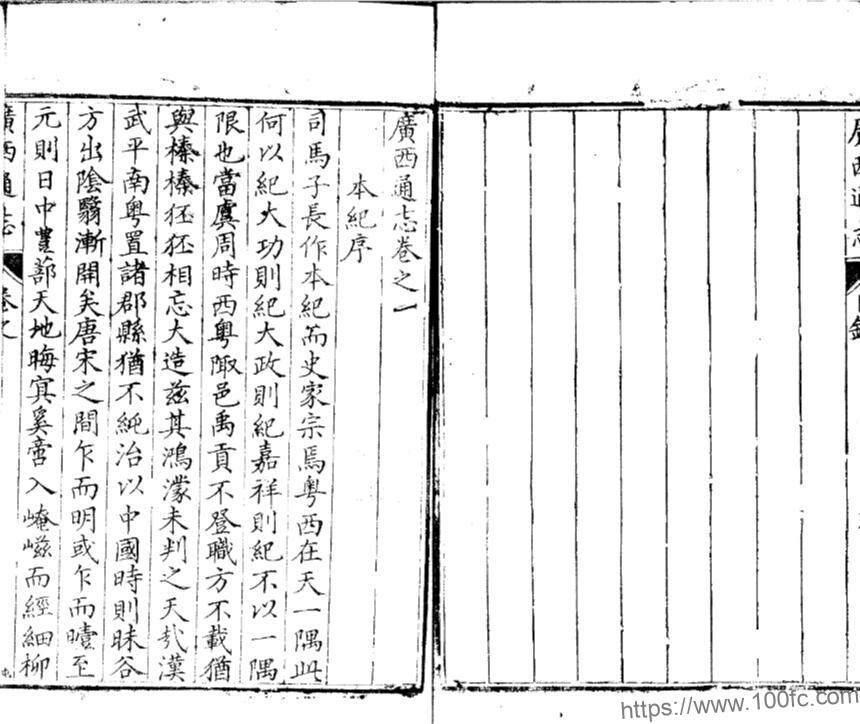 廣西通志
廣西通志卷之一
本紀序
司馬子長作本紀而史家宗焉粵西在天一隅此
何以紀大功則紀大政則紀嘉祥則紀不以一隅
限也當虞周時西粵陬邑禹貢不登職方不載猶
與榛榛狉狉相忘大造兹其鴻濛未判之天哉漢
武平南粵置諸郡縣猶不純治以中國時則昧谷
方出陰翳漸開矣唐宋之間乍而明或乍而曀至
元則日中豐蔀天地晦冥奚啻入崦嵫而經細柳
廣西通志 卷之
https://www.100fc.com